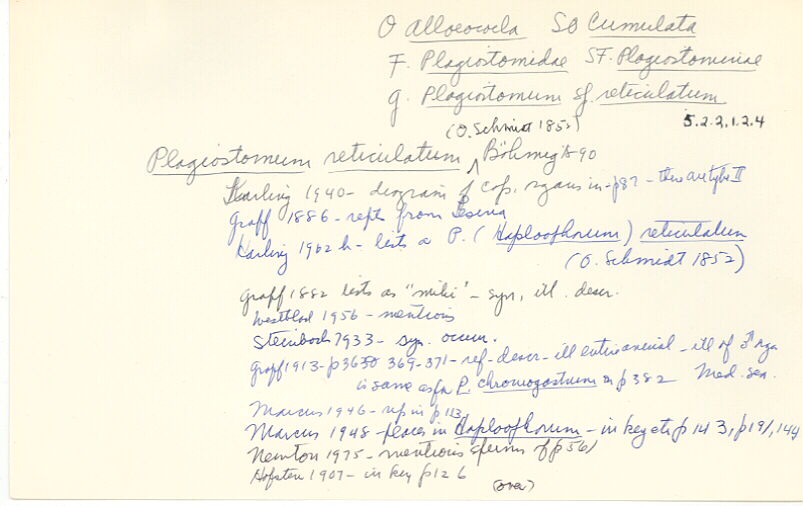 O Alloeocoela SO Cumulata
F. Plagiostomidae SF. Plagiostominae
g. Plagiostomum sf reticulatum
(O. Schmidt 1852) 5.2.2.1.2.4
Plagiostomum reticulatum ^ Böhmig 1890
Karling 1940 - diagram of cop. organs in - p87 - this as type II
Graff 1886 - rept from Lesina
Karling 1962 b - lists as P. (Haploophorum) reticulatum
(O. Schmidt 1852)
Graff 1882 lists as "mihi" - syn, ill. descr.
Westblad 1956 - mentions
Steinböck 1933 - syn. occur.
Graff 1913 - p 369-371 - ref - descr - ill entire animal - ill of ♂ orga
is same as for P. chromogastrum on p 382 Med. sea.
Marcus 1946 - rep in p 113,
Marcus 1948 - places in Haploophorum - in key etc p 143, p191, 144
Newton 1975 - mentions sperm of p 561
Hofsten 1907 - in key p 126
(over)